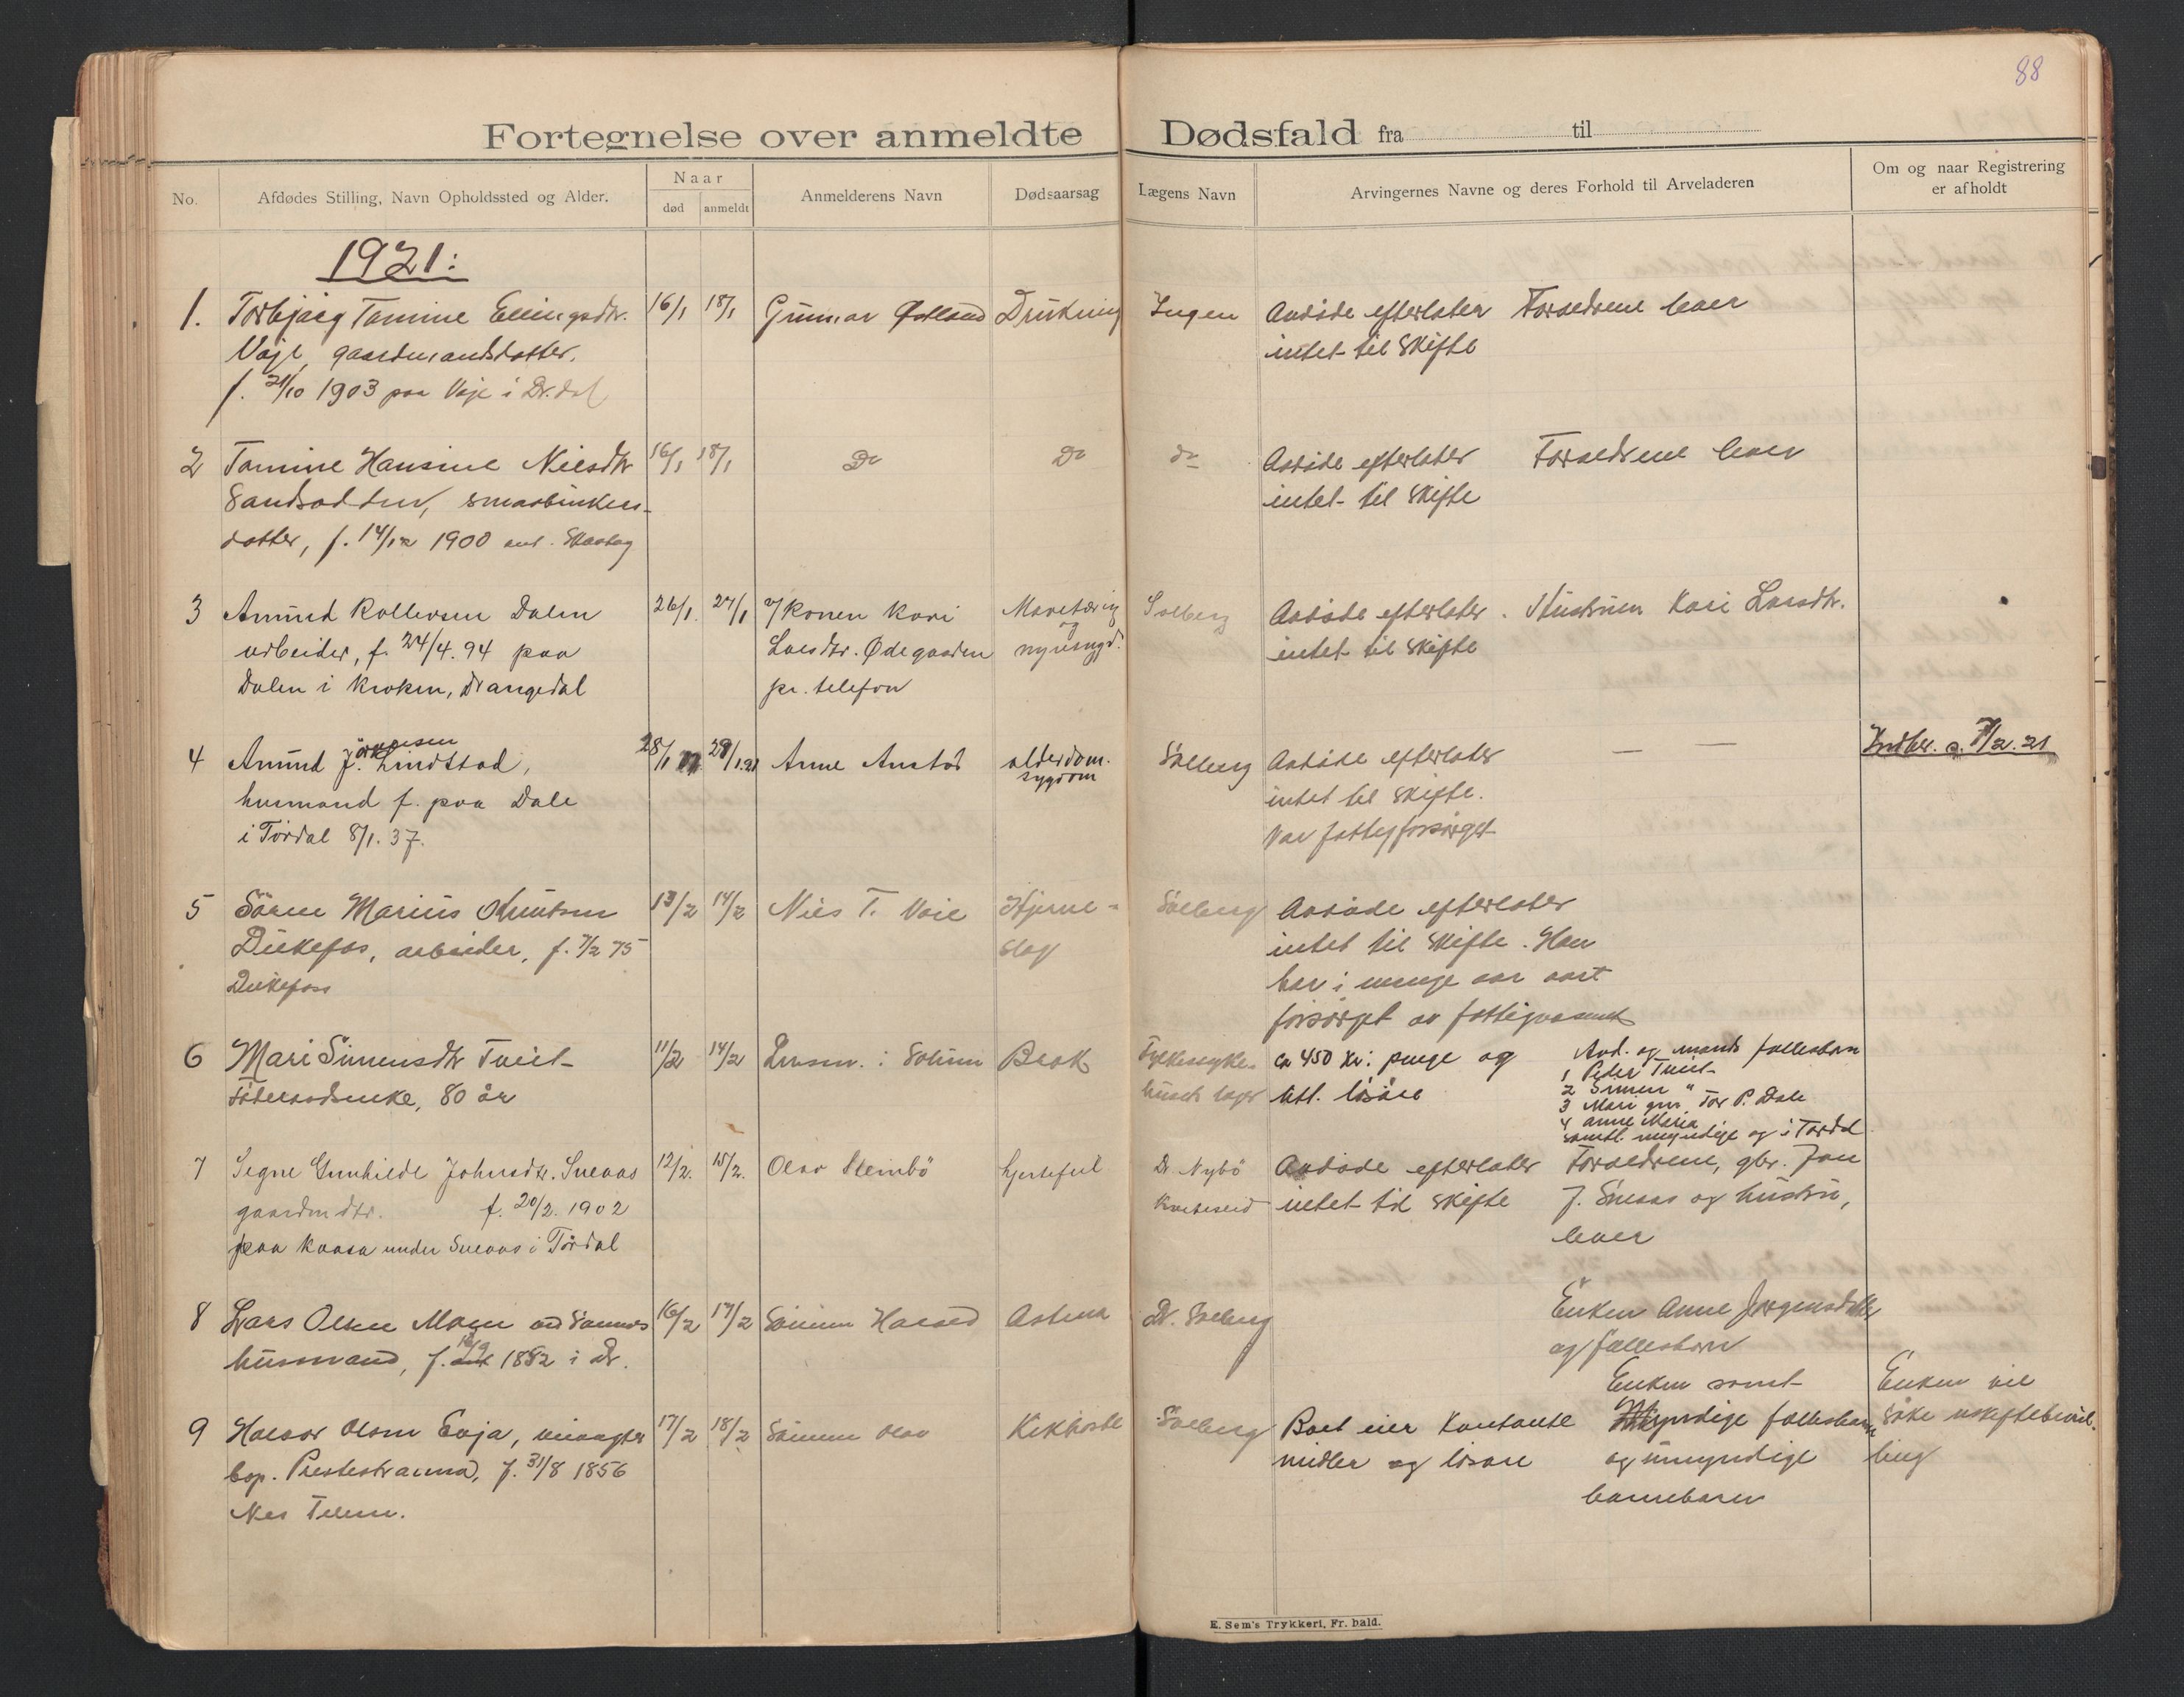 88
Fortegnelse over anmeldte Dødsfald fra til
No.
Afdødes Stilling, Navn Opholdssted og Alder.
Naar
død
anmeldt
Anmelderens Navn
Dødsaarsag
Lægens Navn
Arvingernes Navne og deres Forhold til Arveladeren
Om og naar Registrering
er afholdt
1921:
1. Torbjørg Tomine Ellingsdtr.
Voje, gaardmandsdatter.
f. 21/10 1903 paa Voje i Dr.dal
16/1 18/1 Gunnar Østland Drukning Ingen
Avdøde efterlater
intet til Skifte
Forældrene lever
2 Tomine Hansine Nielsdtr
smaabrukers-
datter, f. 14/12 1900
16/1 18/1 Do Do do
Avdøde efterlater
intet til Skifte
Forældrene lever
3 Amund Rollevsen Dalen
arbeider, f. 24/4.94 paa
Dalen i Kroken, Drangedal
26/1 27/1 v/ Konen Kari
Larsdtr. Ødegaarden
pr. telefon
Mavetæring
og
nyresygd.
Solberg
Avdøde efterlater
intet til Skifte
Hustruen Kari Larsdtr.
4 Amund Jörgensen Lindstad,
husmand f. paa Dale
i Tördal 8/1.37.
28/1 29/1.21 Anne Austad alderdom.
sygdom
Solberg
Avdöde efterlater
intet til Skifte.
Var fattigforsörget
— —
Indber. s. 7/2.21
5 Sören Marius Knutsen
Dükefos, arbeider, f. 7/2 75
Dükefoss
13/2 14/2 Niels T. Voie Hjerne-
slag
Solberg
Avdøde efterlater
intet til Skifte. Han
har i mange aar vært
forsörget av fattigvæsenet
6 Mari Simensdtr Tveit
föderaadsenke, 80 år
11/2 14/2 Lensm. i Solum Brok
Fylkessyke-
husets læge
ca 450 kr. i penge og
litt. lösöre
Avd. og mands fællesbarn
1 Peder Tveit
2 Simen "
3 Mari gm. Tor P. Dale
4 Anne Maria
samtl. myndige og i Tørdal
7 Signe Gunhilde Johnsdtr. Sneaas
gaardm dtr. f. 20/2. 1902
paa Kaasa under Sneaas i Tördal
12/2. 15/2. Olav Stembö hjertefeil
Dr. Nybö
Kviteseid
Avdøde efterlater
intet til Skifte
Forældrene, gbr. Jon
J. Sneaas og hustru,
lever
8 Lars Olsen Moen
husmand, f. 1852 i Dr.
16/2 17/2 Astma
Dr. Solberg
Enken Anne Jørgensdatter
og fællesbarn
9 Halvor Olsen Evja,
bop. Prestestranna, f. 31/8 1856
Nes Telem.
17/2 18/2 Sönnen Olav
Solberg
Boet eier Kontante
midler og lösöre
Enken samt
Myndige fællesbarn
og umyndige
barnebarn
Enken vil
söke uskiftebevil-
ling
E. Sem's Trykkeri, Fr.hald.